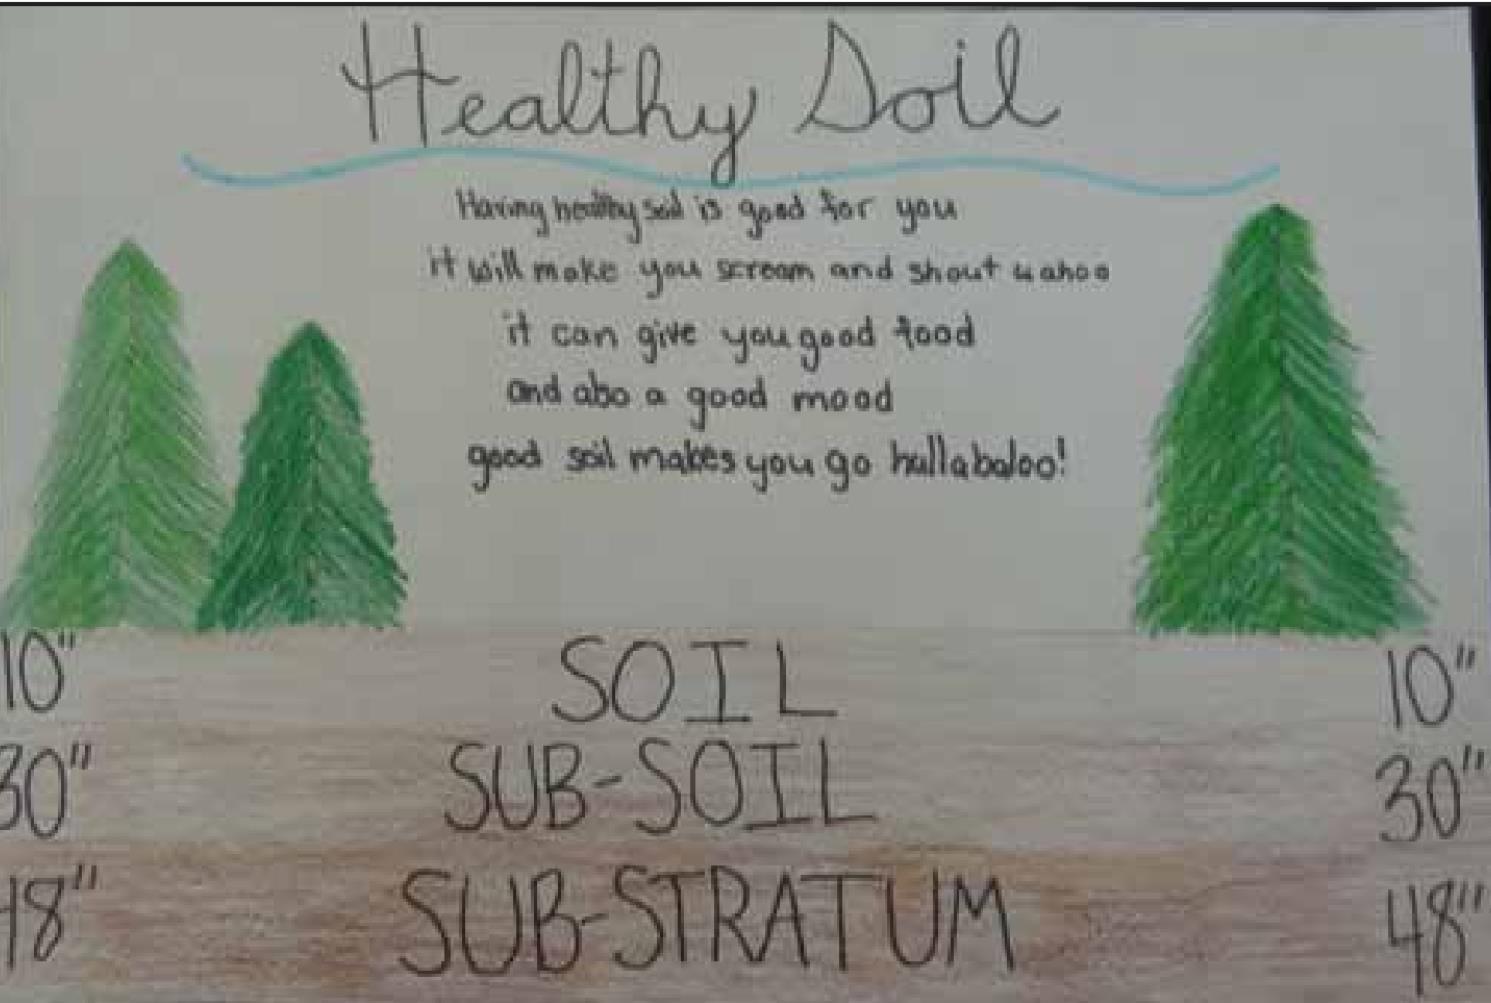 Healthy Soil
Having healthy soil is good for you
it will make you scream and shout wahoo
it can give you good food
and also a good mood
good soil makes you go hullabaloo!
10" SOIL 10"
30" SUB-SOIL 30"
48" SUB-STRATUM 48"